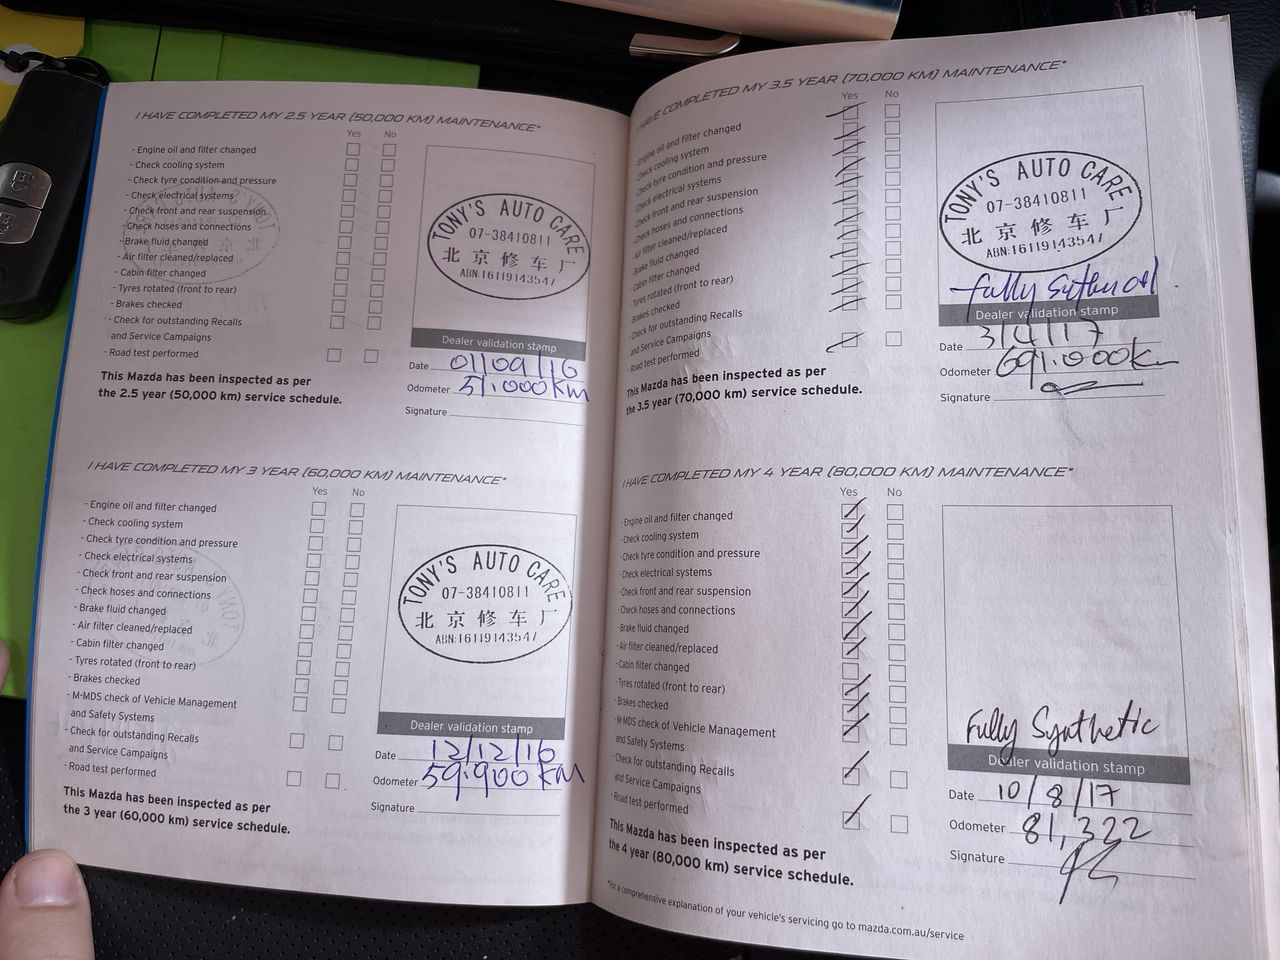 I HAVE COMPLETED MY 2.5 YEAR (50,000 KM) MAINTENANCE*
Yes No
- Engine oil and filter changed
- Check cooling system
- Check tyre condition and pressure
- Check electrical systems
- Check front and rear suspension
- Check hoses and connections
- Brake fluid changed
- Air filter cleaned/replaced
- Cabin filter changed
- Tyres rotated (front to rear)
- Brakes checked
- Check for outstanding Recalls
and Service Campaigns
- Road test performed
This Mazda has been inspected as per
the 2.5 year (50,000 km) service schedule.
TONY'S AUTO CARE
07-38410811
北京修车厂
ABN:16119143547
Dealer validation stamp
Date 01/09/16
Odometer 51.000 KM
Signature
I HAVE COMPLETED MY 3 YEAR (60,000 KM) MAINTENANCE*
Yes No
- Engine oil and filter changed
- Check cooling system
- Check tyre condition and pressure
- Check electrical systems
- Check front and rear suspension
- Check hoses and connections
- Brake fluid changed
- Air filter cleaned/replaced
- Cabin filter changed
- Tyres rotated (front to rear)
- Brakes checked
- M-MDS check of Vehicle Management
and Safety Systems
- Check for outstanding Recalls
and Service Campaigns
- Road test performed
This Mazda has been inspected as per
the 3 year (60,000 km) service schedule.
TONY'S AUTO CARE
07-38410811
北京修车厂
ABN:16119143547
Dealer validation stamp
Date 12/12/16
Odometer 59.900 KM
Signature
I HAVE COMPLETED MY 3.5 YEAR (70,000 KM) MAINTENANCE*
Yes No
- Engine oil and filter changed
- Check cooling system
- Check tyre condition and pressure
- Check electrical systems
- Check front and rear suspension
- Check hoses and connections
- Air filter cleaned/replaced
- Brake fluid changed
- Cabin filter changed
- Tyres rotated (front to rear)
- Brakes checked
- Check for outstanding Recalls
and Service Campaigns
- Road test performed
This Mazda has been inspected as per
the 3.5 year (70,000 km) service schedule.
TONY'S AUTO CARE
07-38410811
北京修车厂
ABN:16119143547
fully
Dealer validation stamp
Date 3/4/17
Odometer 691.000k
Signature
I HAVE COMPLETED MY 4 YEAR (80,000 KM) MAINTENANCE*
Yes No
- Engine oil and filter changed
- Check cooling system
- Check tyre condition and pressure
- Check electrical systems
- Check front and rear suspension
- Check hoses and connections
- Brake fluid changed
- Air filter cleaned/replaced
- Cabin filter changed
- Tyres rotated (front to rear)
- Brakes checked
- M-MDS check of Vehicle Management
and Safety Systems
- Check for outstanding Recalls
and Service Campaigns
- Road test performed
This Mazda has been inspected as per
the 4 year (80,000 km) service schedule.
Fully Synthetic
Dealer validation stamp
Date 10/8/17
Odometer 81,322
Signature
*For a comprehensive explanation of your vehicle's servicing go to mazda.com.au/service